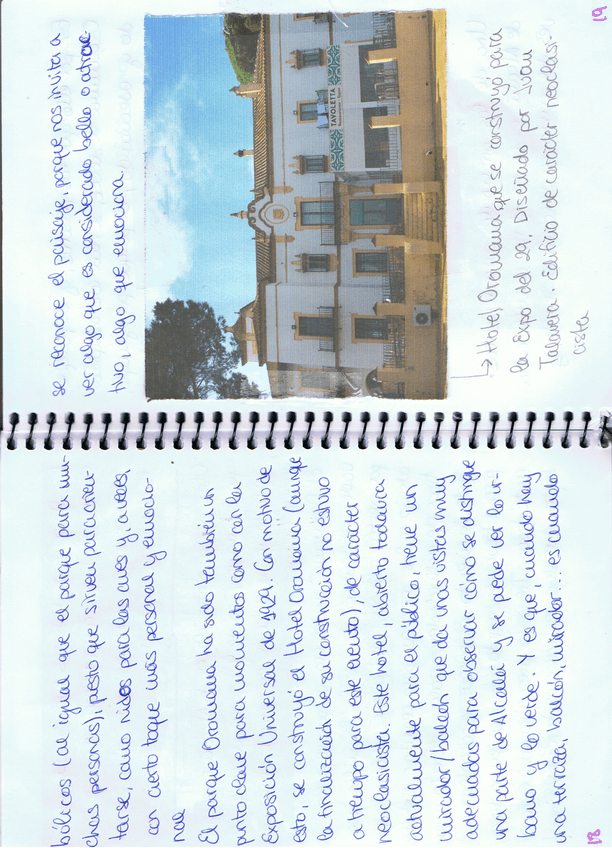 bólicos (al igual que el parque para mu-
chas personas), puesto que sirven para orien-
tarse, como nidos para las aves y, a veces,
con cierto toque más personal y emocio-
nal
El parque Oromana ha sido también un
punto clave para momentos como con la
Exposición Universal de 1929. Con motivo de
esto, se construyó el Hotel Oromana (aunque
la finalización de su construcción no estuvo
a tiempo para este evento), de carácter
neoclasicista. Este hotel, abierto todavía
actualmente para el público, tiene un
mirador/balcón que da unas vistas muy
adecuadas para observar cómo se distingue
una parte de Alcalá y se puede ver lo ur-
bano y lo verde. Y es que, cuando hay
una terraza, balcón, mirador... es cuando
18
se reconoce el paisaje, porque nos invita a
ver algo que es considerado bello o atrac-
tivo, algo que emociona.
TAVOLETTA
↳ Hotel Oromana que se construyó para
la Expo del 29. Diseñado por Juan
Talavera. Edificio de carácter neoclasi-
cista
19